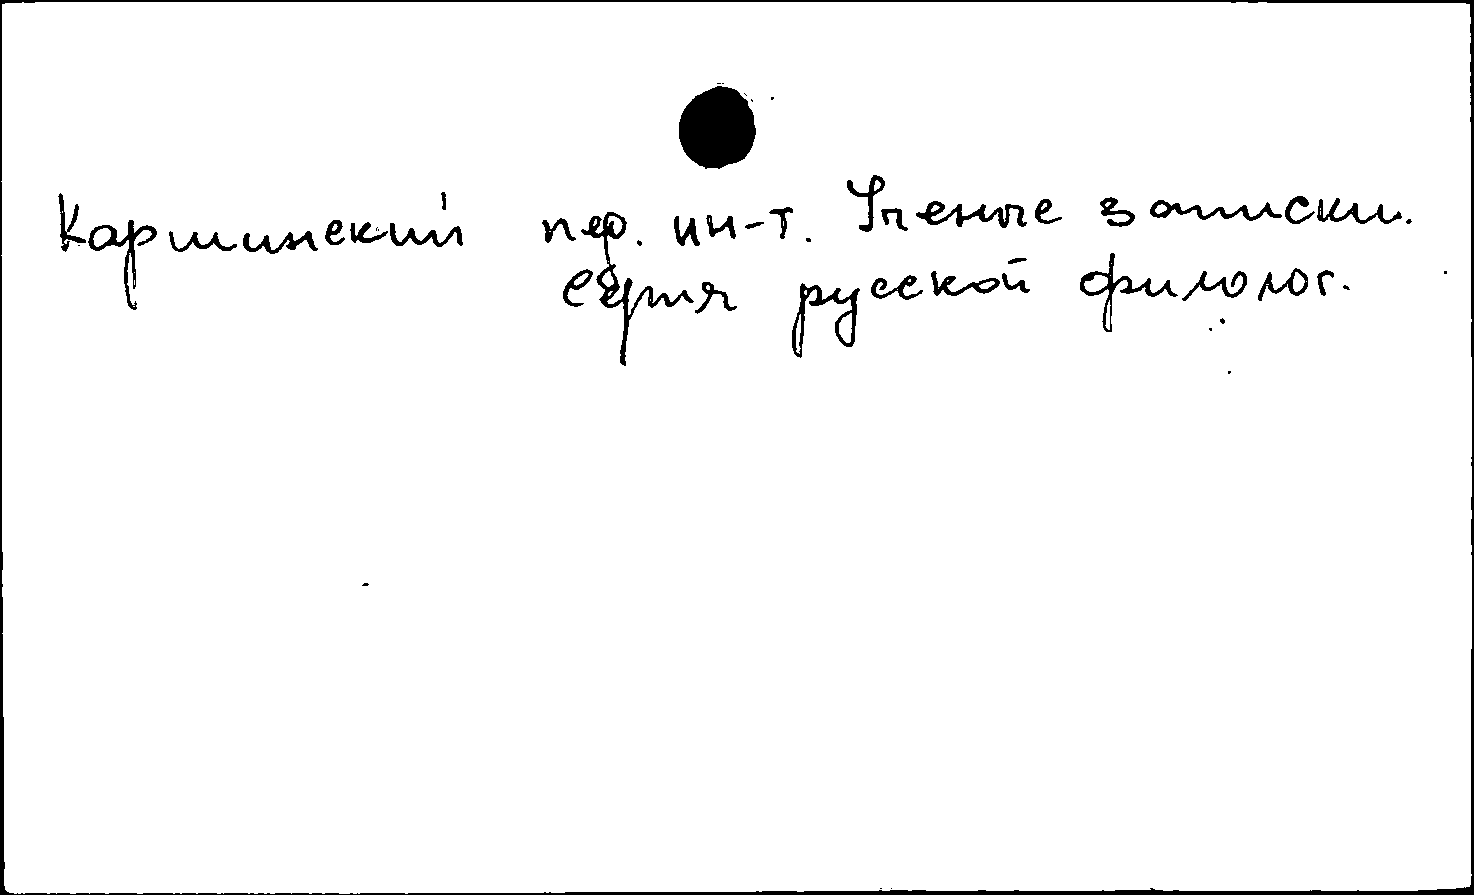 Каршинский пед. ин-т. Ученые записки.
Серия русской филолог.